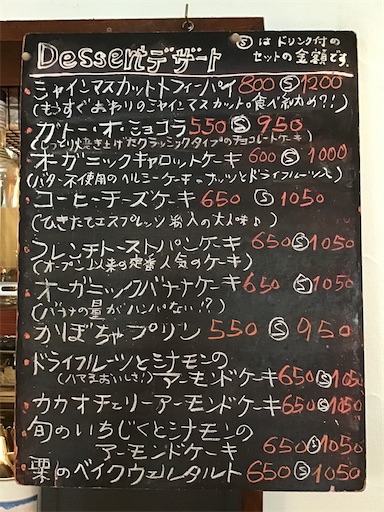 Dessertデザート
Ⓢはドリンク付の
セットの金額です。
シャインマスカットトフィーパイ 800 Ⓢ 1200
(もうすぐおわりのシャインマスカット。食べ納め?!)
ガトー・オ・ショコラ 550 Ⓢ 950
(しっとり焼き上げたクラッシックタイプのチョコレートケーキ)
オーガニックキャロットケーキ 600 Ⓢ 1000
(バター不使用のヘルシーケーキ。ナッツとドライフルーツ入)
コーヒーチーズケーキ 650 Ⓢ 1050
(ひきたてエスプレッソ粉入の大人味♪)
フレンチトーストパンケーキ 650 Ⓢ 1050
(オープン以来の定番人気のケーキ)
オーガニックバナナケーキ 650 Ⓢ 1050
(バナナの量がハンパない!?)
かぼちゃプリン 550 Ⓢ 950
ドライフルーツとシナモンの
アーモンドケーキ 650 Ⓢ 1050
カカオチェリーアーモンドケーキ 650 Ⓢ 1050
旬のいちじくとシナモンの
アーモンドケーキ 650 Ⓢ 1050
栗のベイクウェルタルト 650 Ⓢ 1050